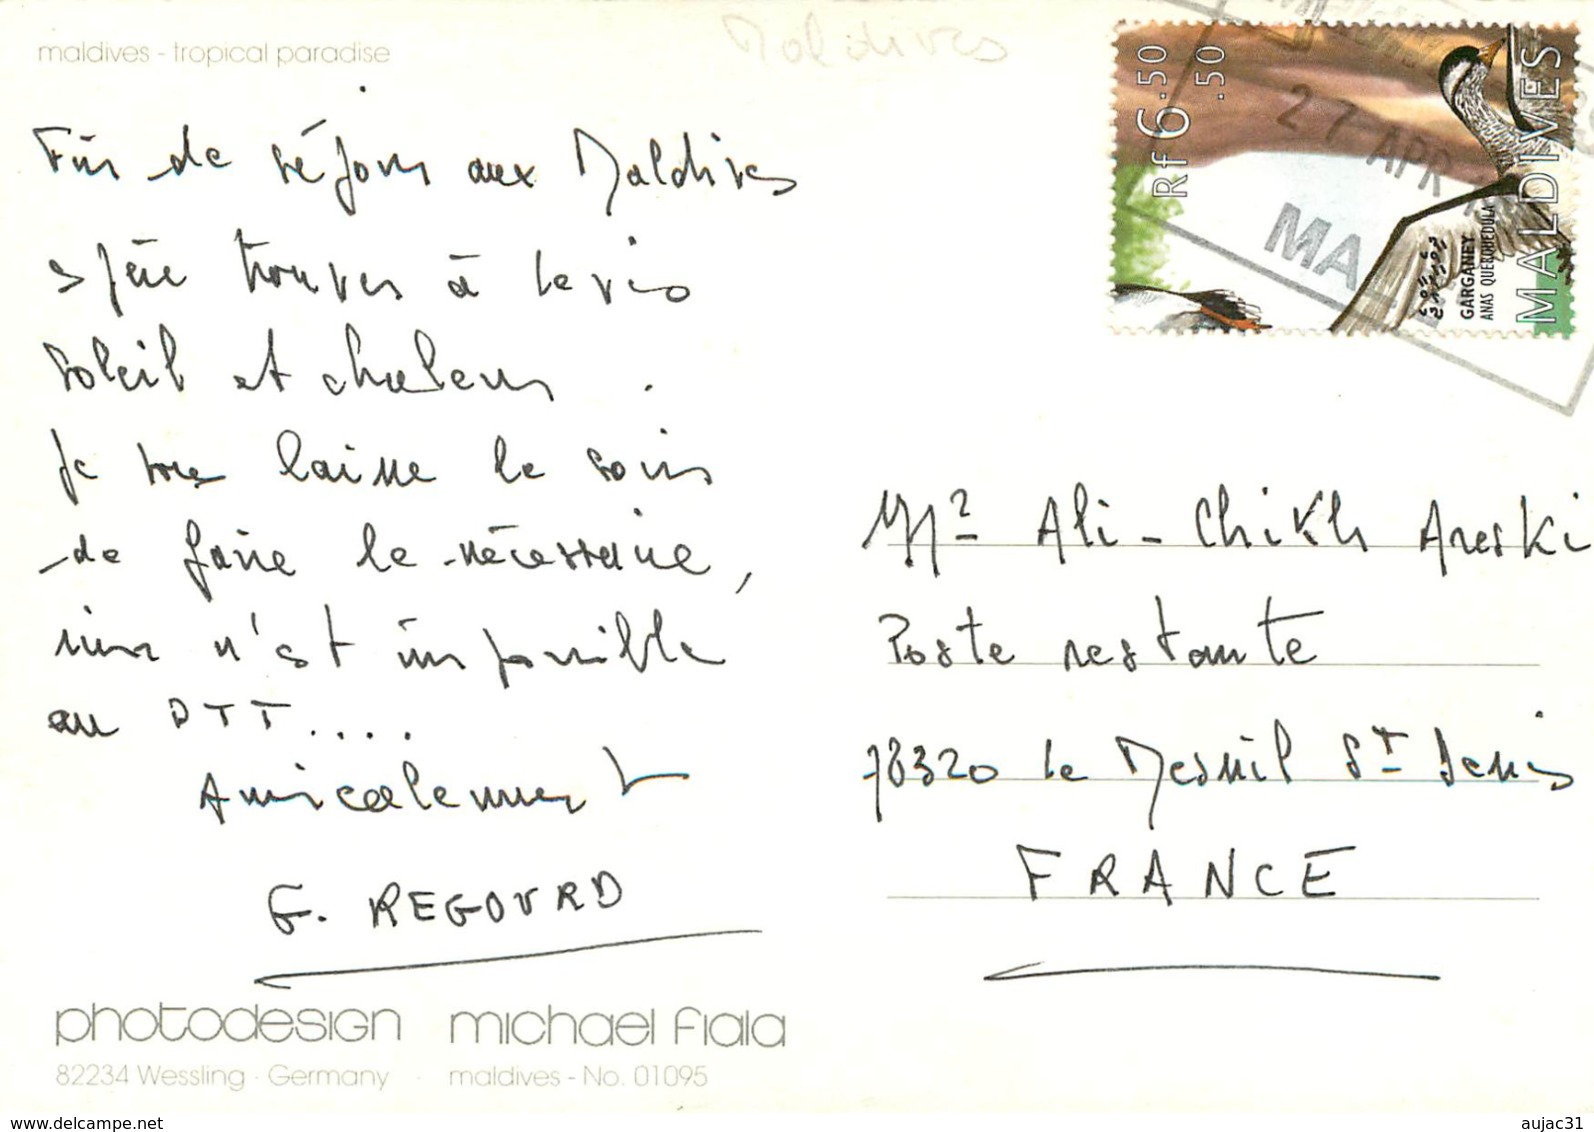 maldives - tropical paradise
Maldives
Fin de séjour aux Maldives
espère trouver à Paris
soleil et chaleur.
je vous laisse le soin
de faire le nécessaire,
rien n'est impossible
au PTT....
Amicalement
G. REGOURD
photodesign michael fiala
82234 Wessling · Germany · maldives - No. 01095
Rf 6.50
.50
GARGANEY
ANAS QUERQUEDULA
MALDIVES
27 APR
MALE
Mr Ali-Chikh Areski
Poste restante
78320 le Mesnil St Denis
FRANCE
www.delcampe.net
aujac31